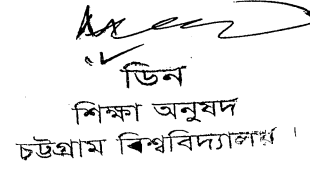 ডিন
শিক্ষা অনুষদ
চট্টগ্রাম বিশ্ববিদ্যালয় ।